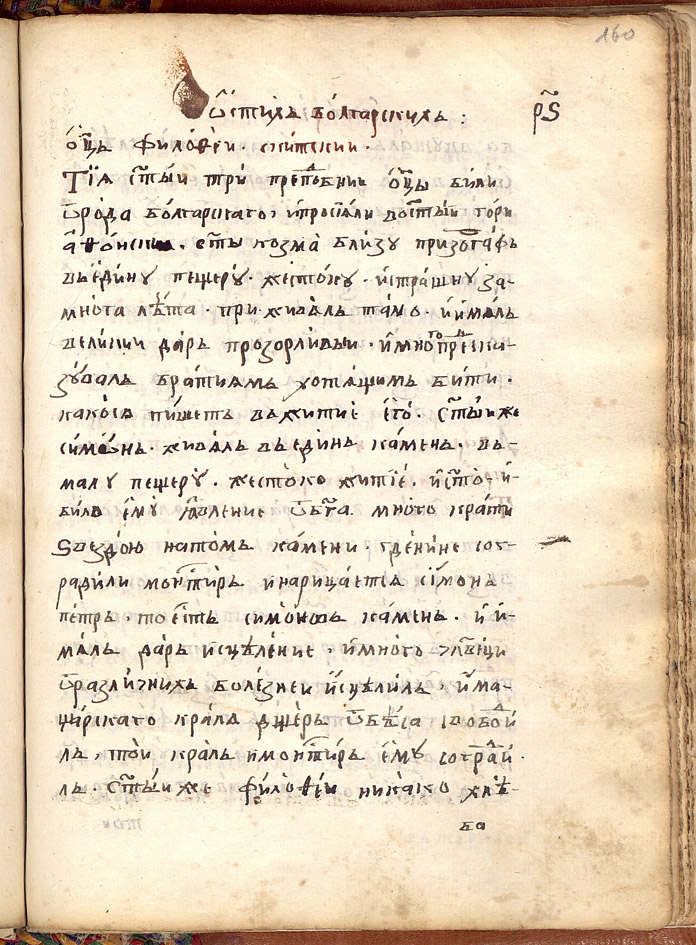 160
ѡ҃ стихъ болгарскихъ : р҃ѕ
ѻц҃ь фило́ѳеи . скитскии .
Тїѧ ст҃ы́и три преподⷪ҇бнии ѻц҃ы били
ѿ ро́да болгарскаго , и просїѧ́ли во ст҃ы́и гори
а҆ѳо́нски . ст҃ы козма̀ близу при зогра́фъ
въ е҆ди́ну пещеру̀ . жесто́ку . и҆ стра́шну за
мно́га лѣ́та . приживалъ тамо . и҆ и҆малъ
велики́и да́ръ прозорли́выи . и҆ мно́гⷪ пре́дска-
зу́валъ бра́тиѧмъ хотѧ́щимъ бити .
како́сѧ пи́шетъ в житиѐ е҆гѡ̀ . ст҃ы́и же
симео́нъ . живалъ въ е҆ди́нъ ка́менъ . въ-
малу пещеру̀ . жесто́ко житїѐ . и҆ сто҃ и҆-
било е҆мꙋ̀ ꙗ҆вле́ние ѿ бг҃а . много крати
ѕвездо́ю на томъ ка́мени . гдѐ ни́нѐ соⷢ-
ради́ли монⷭ҇ти́ръ и нарица́етсѧ сїмонъ
пе́тръ , то є҆́стъ симо́новъ ка́менъ . и҆ и҆-
ма́лъ даръ и҆сцѣле́ние . и҆ мно́гъ члв҃е́ци
ѿ разли́чнихъ боле́знеи и҆сцѣли́лъ , и҆ ма-
џарскаго кра́лѧ дще́ръ ѿ бѣ́са свободи́-
лъ , то́и кра́лъ и мо́нⷭ҇ти́ръ е҆мꙋ̀ согради́-
лъ . ст҃ы́и же фїло́ѳеи ника́ко хлѣ́-
ба